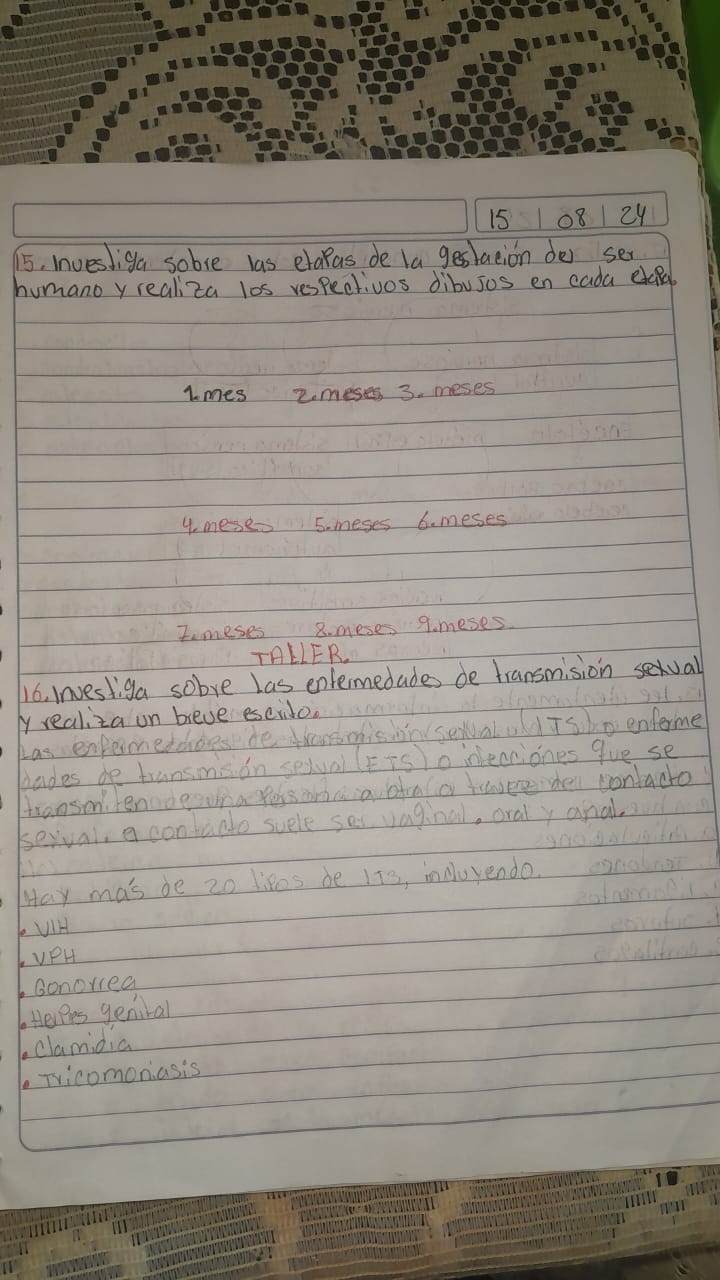 15 | 08 | 24
15. Investiga sobre las etapas de la gestación der ser
humano y realiza los respectivos dibujos en cada etapa.
1.mes 2.meses 3. meses
4.meses 5.meses 6.meses
7.meses 8.meses 9.meses
TALLER.
16. Investiga sobre las enfermedades de transmisión sexual
y realiza un breve escrito.
Las enfermedades de transmisión sexual (ITS) o enferme
dades de transmisión sexual (ETS) o infecciones que se
transmiten de una persona a otra a travez del contacto
sexual. e contacto suele ser vaginal. oral y anal.
Hay más de 20 tipos de ITS, incluyendo.
• VIH
• VPH
• Gonorrea
• Herpes genital
• Clamidia
• Tricomoniasis